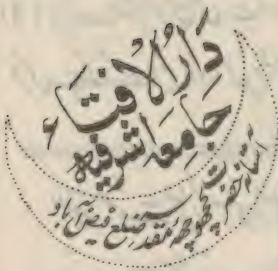 دَارُالافتَاء
جامعہ اشرفیہ
آستانہ حضرت کچھوچھہ مقدسہ ضلع فیض آباد